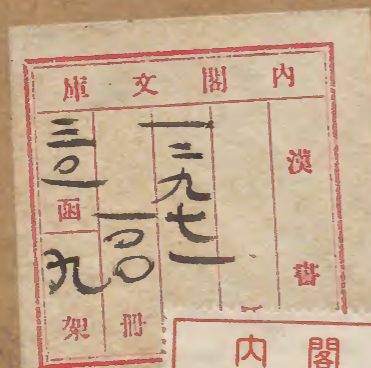 内閣文庫
漢書
一二九七一
一〇〇冊
三〇一函
九架
内閣